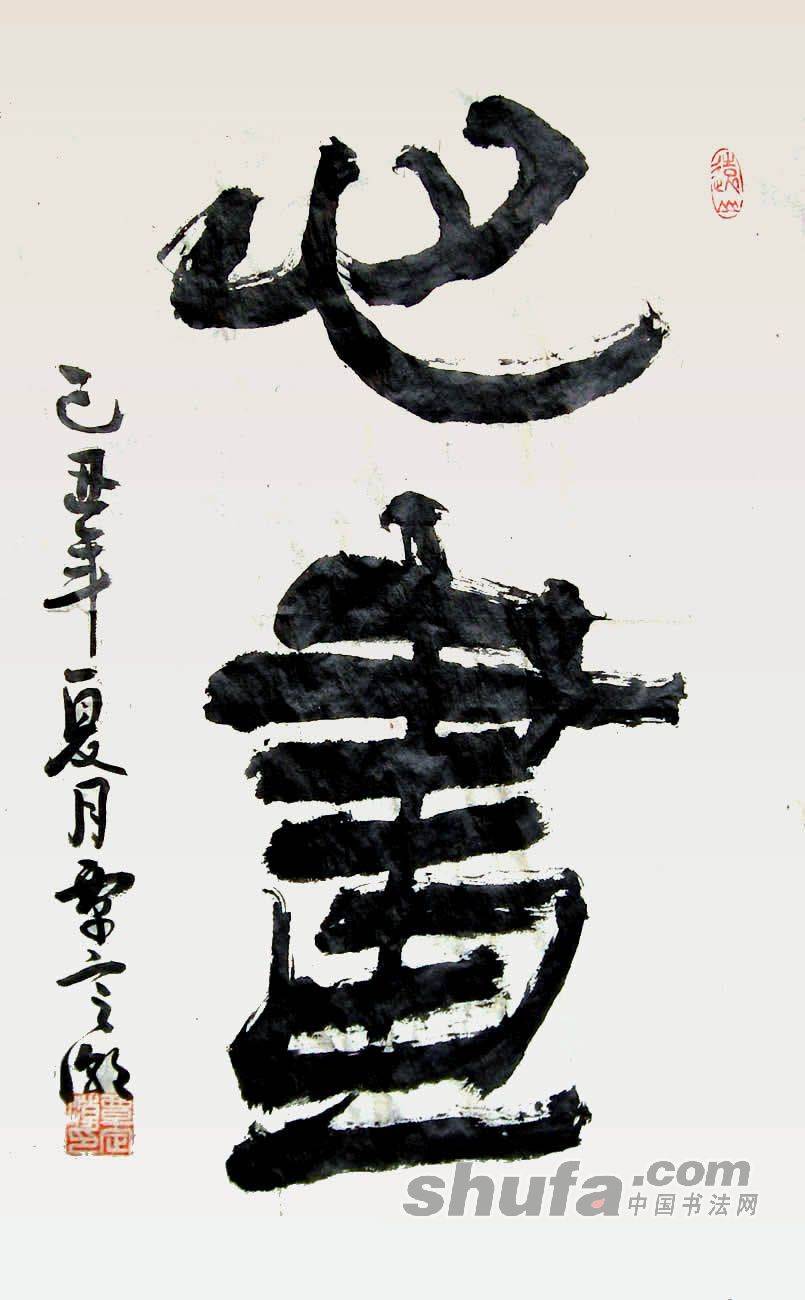 心畫
己丑年夏月覃
shufa.com
中国书法网